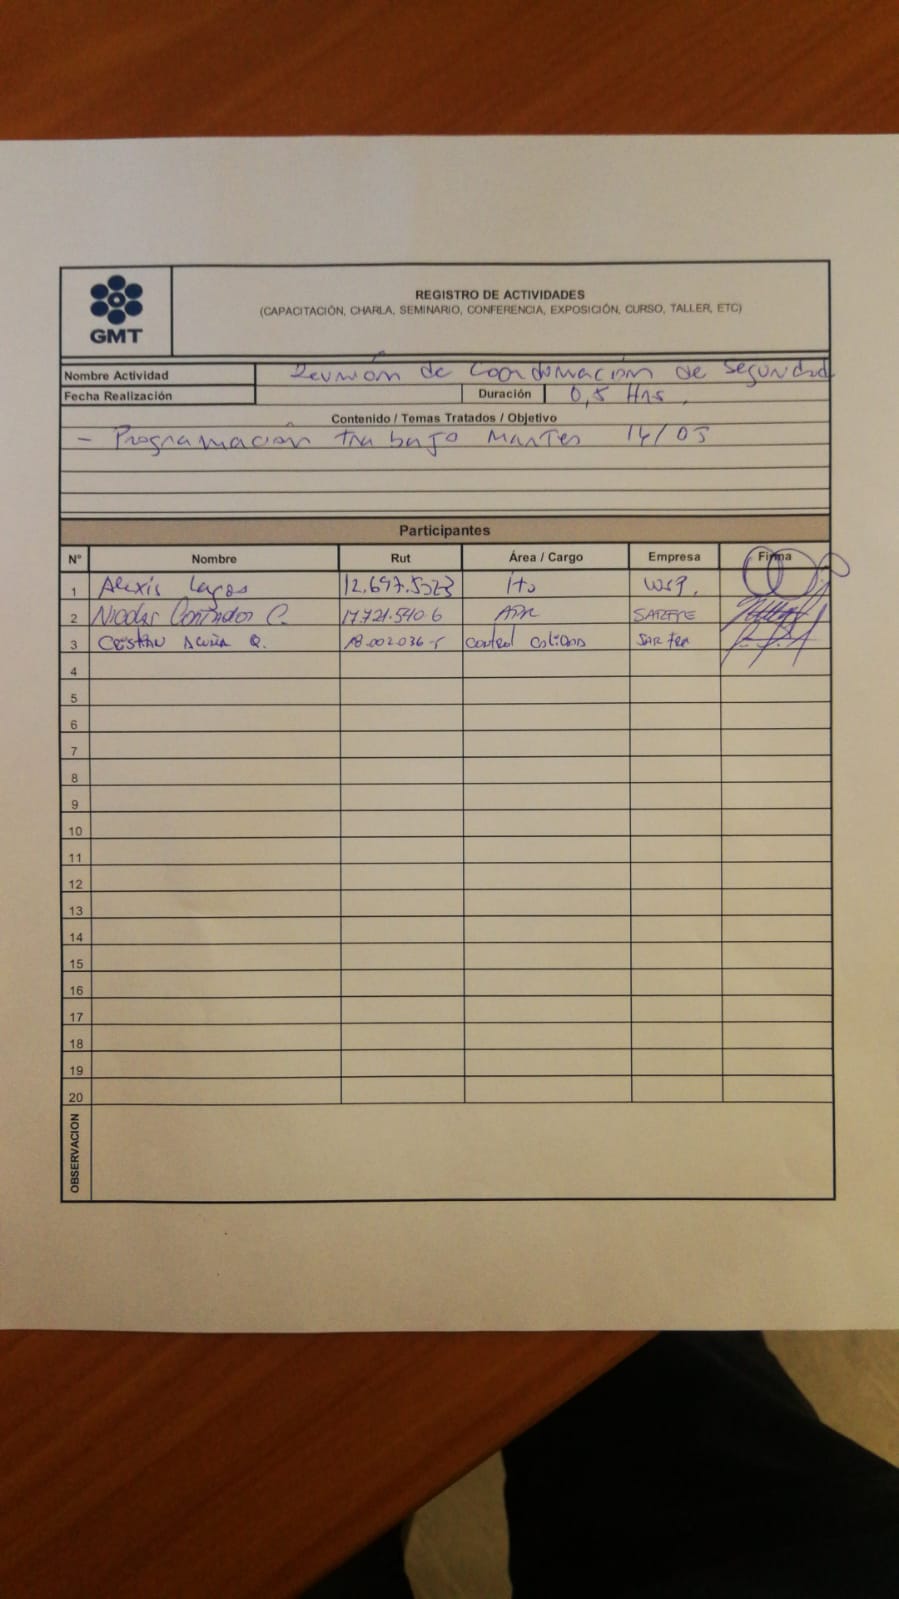 GMT
REGISTRO DE ACTIVIDADES
(CAPACITACIÓN, CHARLA, SEMINARIO, CONFERENCIA, EXPOSICIÓN, CURSO, TALLER, ETC)
Nombre Actividad Reunión de Coordinación de Seguridad
Fecha Realización Duración 0,5 Hrs.
Contenido / Temas Tratados / Objetivo
- Programación trabajo Martes 14/05
Participantes
N° Nombre Rut Área / Cargo Empresa Firma
1 Alexis Lagos Ito WSP.
2 Nicolas Contador C. 17.721.540-6 APR
3 Acuña Q. 18.002.036-5 Control
4
5
6
7
8
9
10
11
12
13
14
15
16
17
18
19
20
OBSERVACION